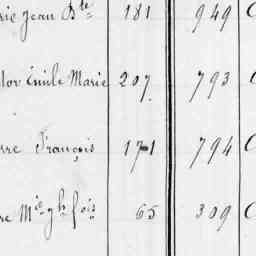 rie Jean Bte 181 949 C
tor Émile Marie 207 793 C
rre François 171 794 C
re Mie gh. fois 65 309 C